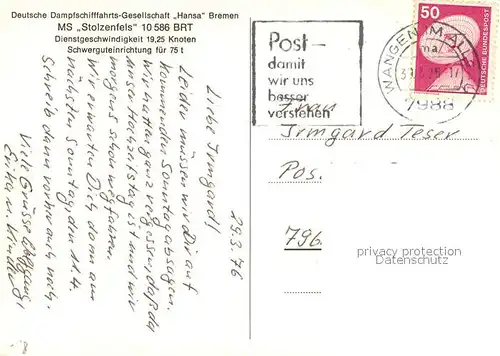 Deutsche Dampfschifffahrts-Gesellschaft „Hansa" Bremen
MS „Stolzenfels" 10 586 BRT
Dienstgeschwindigkeit 19,25 Knoten
Schwerguteinrichtung für 75 t
29.3.76
Liebe Irmgard!
Leider müssen wir Dir auf
kommenden Sonntag absagen.
Wir hatten ganz vergessen, daß da
unser Hochzeitstag ist und wir
morgens schon wegfahren.
Wir erwarten Dich dann am
nächsten Sonntag den 11.4.
Schreib dann vorher auch noch.
Viele Grüsse Wolfgang,
Erika u. Kinder
Post –
damit
wir uns
besser
verstehen
WANGEN IM ALLG
7988
50
DEUTSCHE BUNDESPOST
Frau
Irmgard Teser
Pos.
796
privacy protection
watermark